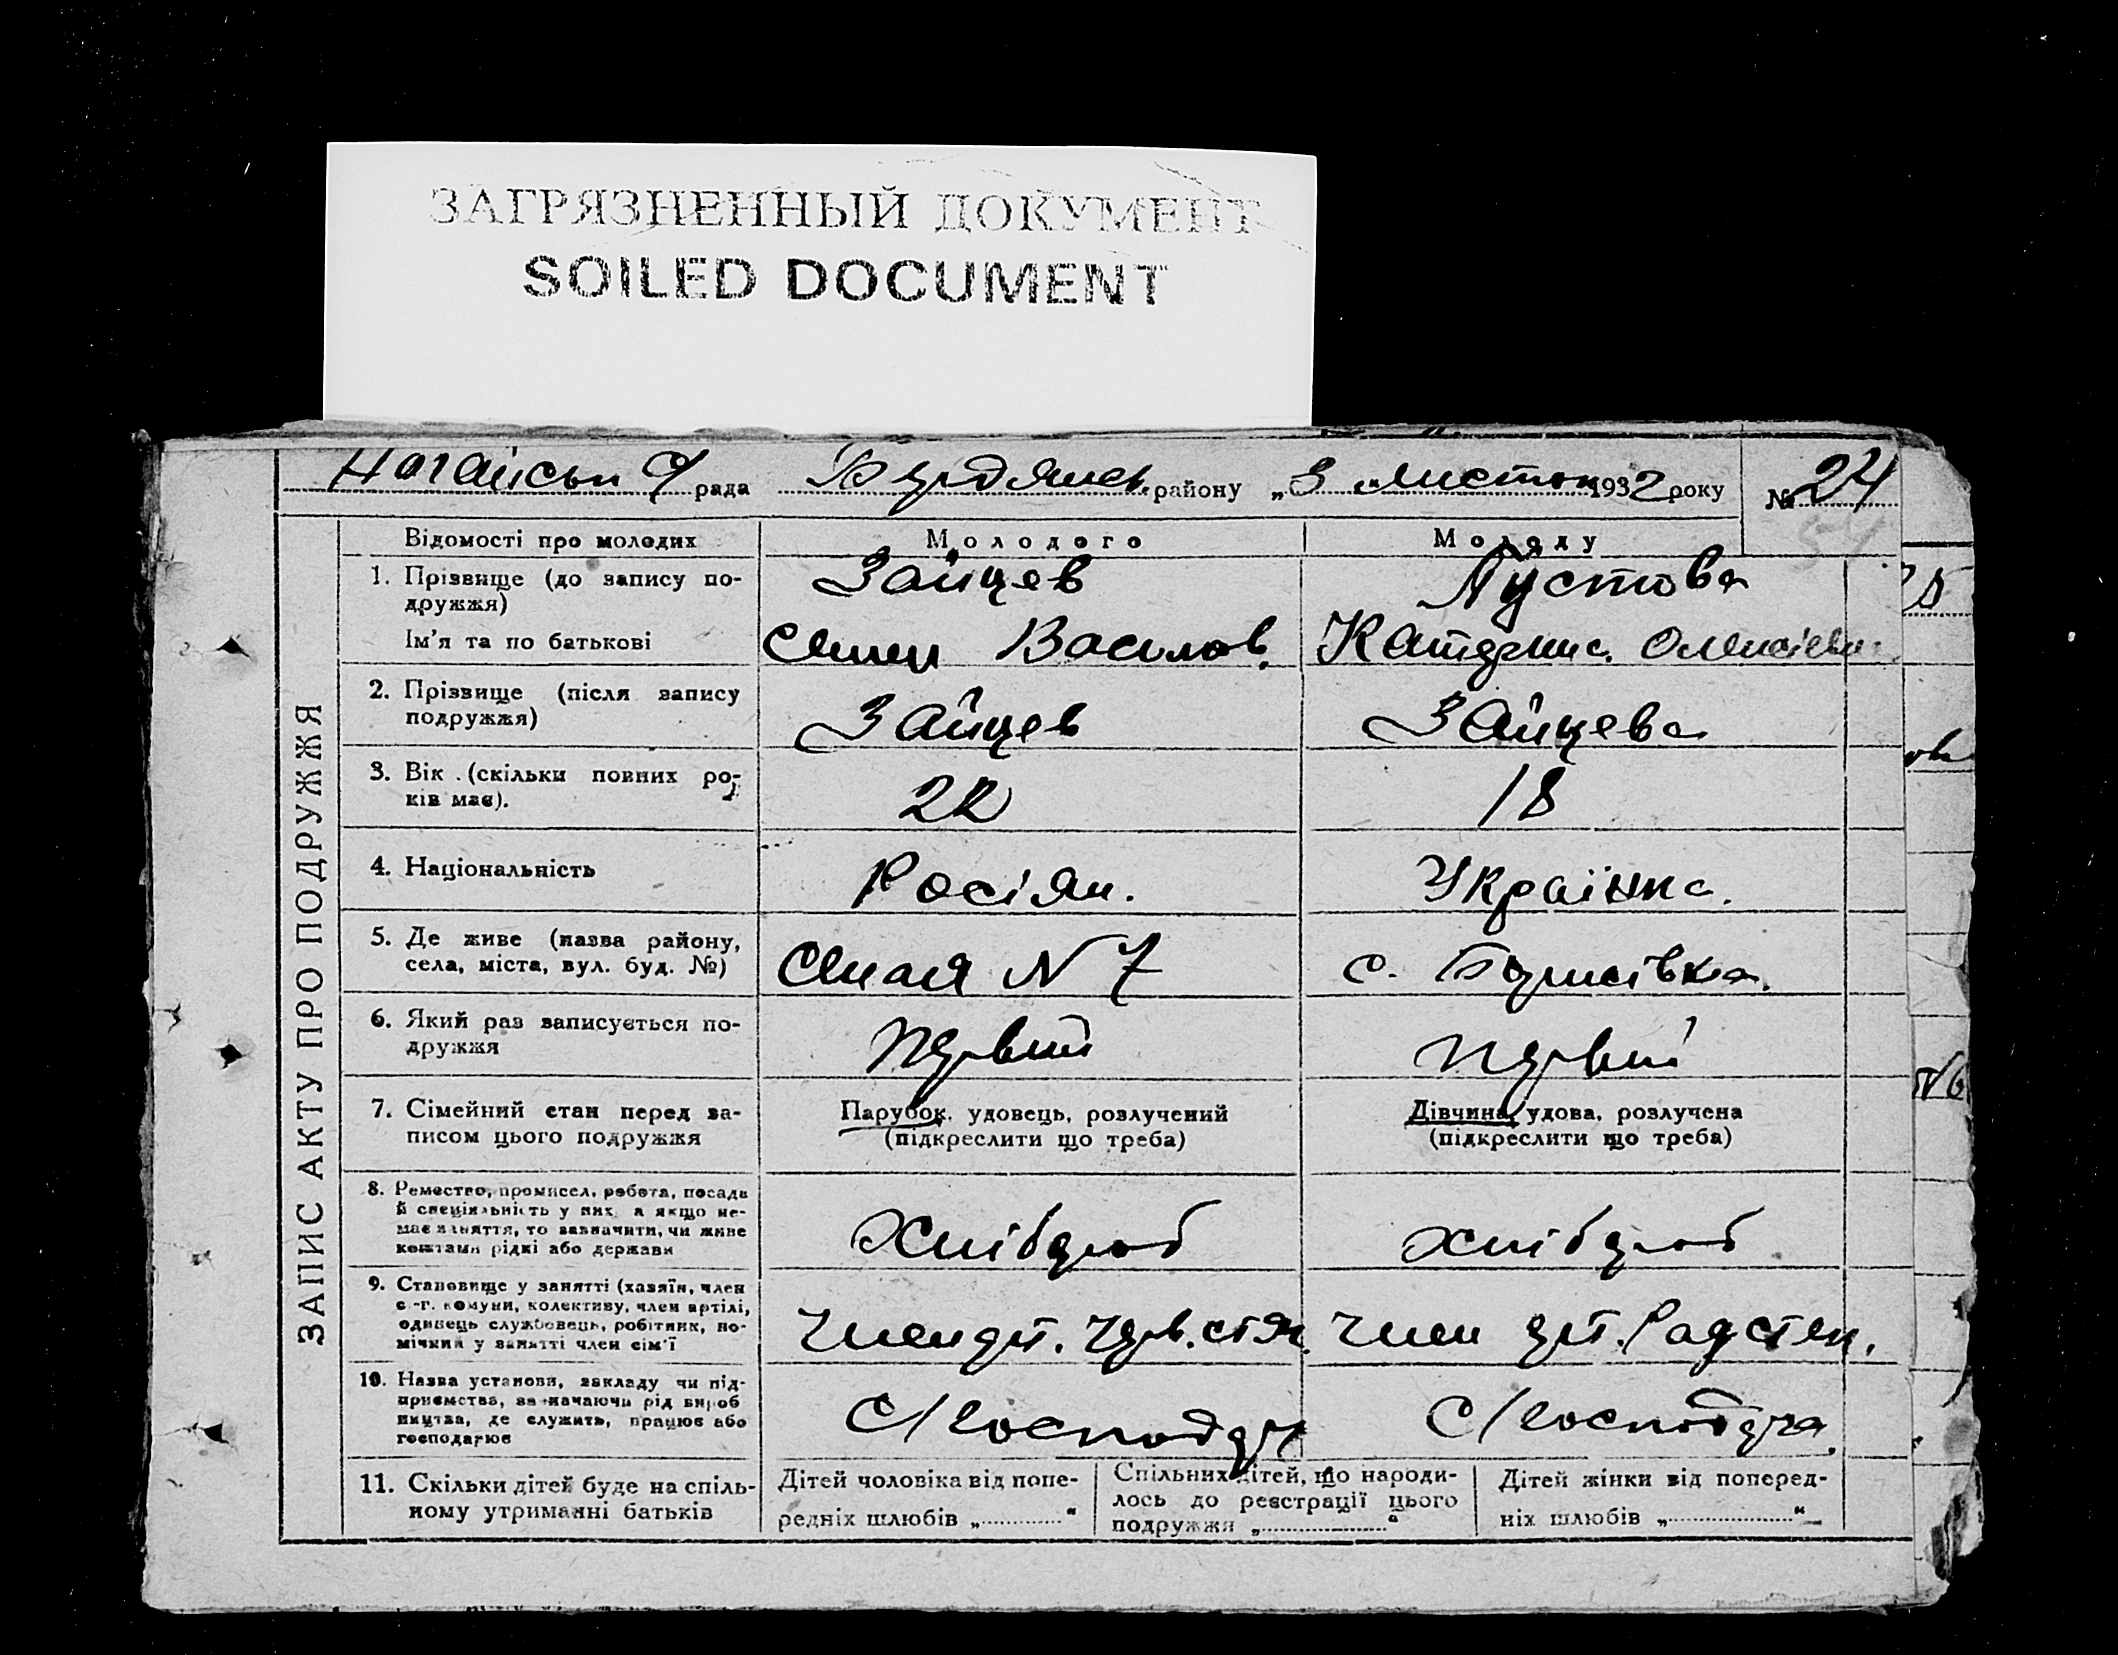 ЗАГРЯЗНЕННЫЙ ДОКУМЕНТ
SOILED DOCUMENT
Ногайськ рада Бердянськ. району „3 листоп 1932 року № 24
54
ЗАПИС АКТУ ПРО ПОДРУЖЖЯ
Відомості про молодих Молодого Молоду
1. Прізвище (до запису по-
дружжя) Зайцев Пустова
Ім'я та по батькові Семен Васильов. Катерина. Олексієвн
2. Прізвище (після запису
подружжя) Зайцев Зайцева
3. Вік (скільки повних ро-
ків має). 22 18
4. Національність Росіян. Українка.
5. Де живе (назва району,
села, міста, вул. буд. №) N 7 с. Борисівка.
6. Який раз записується по-
дружжя Первий Первий
7. Сімейний стан перед за-
писом цього подружжя
Парубок, удовець, розлучений
(підкреслити що треба)
Дівчина, удова, розлучена
(підкреслити що треба)
8. Ремество, промисел, робота, посада
й спеціяльність у них, а якщо не-
має заняття, то зазначити, чи живе
коштами рідні або держави
Хлібороб хлібороб
9. Становище у занятті (хазяїн, член
с.-г. комуни, колективу, член артілі,
одинець службовець, робітник, по-
мічний у занятті член сім'ї
Член арт. Черв. степ. член арт. Рад степ.
10. Назва установи, закладу чи під-
приємства, зазначаючи рід вироб
ництва, де служить, працює або
господарює
С/господар С/господара.
11. Скільки дітей буде на спіль-
ному утриманні батьків
Дітей чоловіка від попе-
редніх шлюбів „ “
Спільних дітей, що народи-
лось до реєстрації цього
подружжя „ “
Дітей жінки від поперед-
ніх шлюбів „ “
25
N6